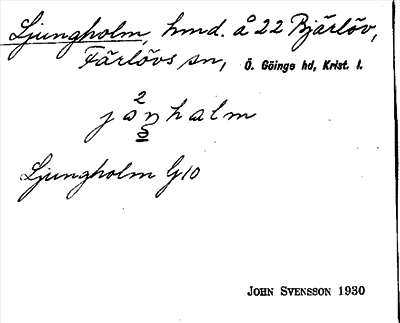 Ljungholm, hmd. å 22 Bjärlöv,
Färlövs sn, Ö. Göinge hd, Krist. l.
Ljungholm G10
JOHN SVENSSON 1930